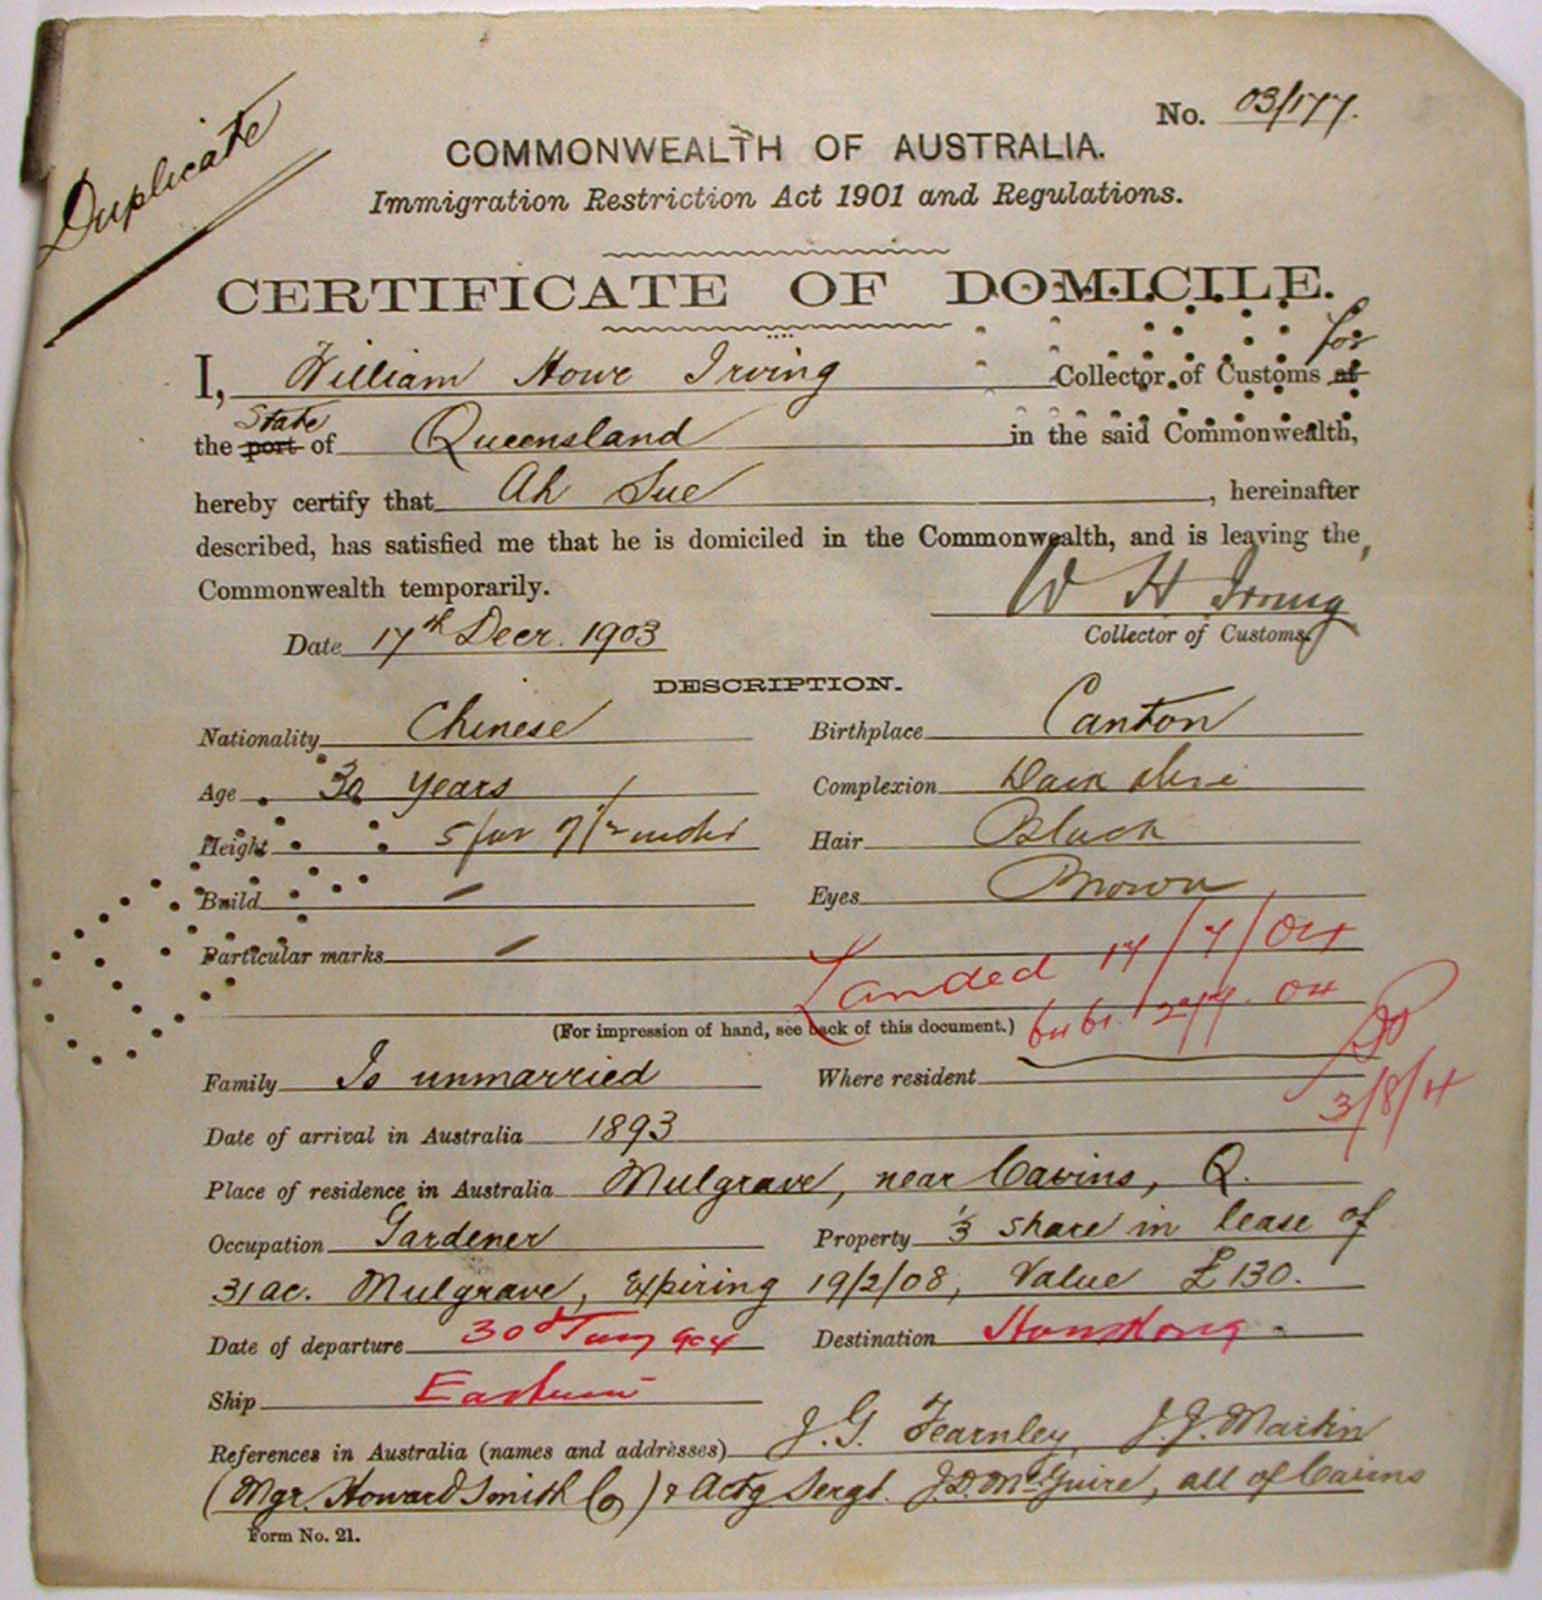 No. 03/177.
Duplicate
COMMONWEALTH OF AUSTRALIA.
Immigration Restriction Act 1901 and Regulations.
CERTIFICATE OF DOMICILE.
I, William Howe Irving Collector of Customs at for
the port State of Queensland in the said Commonwealth,
hereby certify that Ah Sue, hereinafter
described, has satisfied me that he is domiciled in the Commonwealth, and is leaving the
Commonwealth temporarily.
W H Irving
Date 17th Decr. 1903
Collector of Customs.
DESCRIPTION.
Nationality Chinese Birthplace Canton
Age 30 years Complexion Dark
Height 5 7 1/2 inches Hair Black
Build – Eyes Brown
Particular marks –
Landed 17/7/04
(For impression of hand, see back of this document.)
Family Is unmarried Where resident
3/8/4
Date of arrival in Australia 1893
Place of residence in Australia Mulgrave, near Cairns, Q.
Occupation Gardener Property 1/3 share in lease of
31 ac. Mulgrave, Expiring 19/2/08, Value £130.
Date of departure 30 904 Destination Hong Kong
Ship Eastern
References in Australia (names and addresses) J. G. Fearnley, J. J. Martin
(Mgr. Howard Smith Co) & Actg Sergt. J. D. McGuire, all of Cairns
Form No. 21.